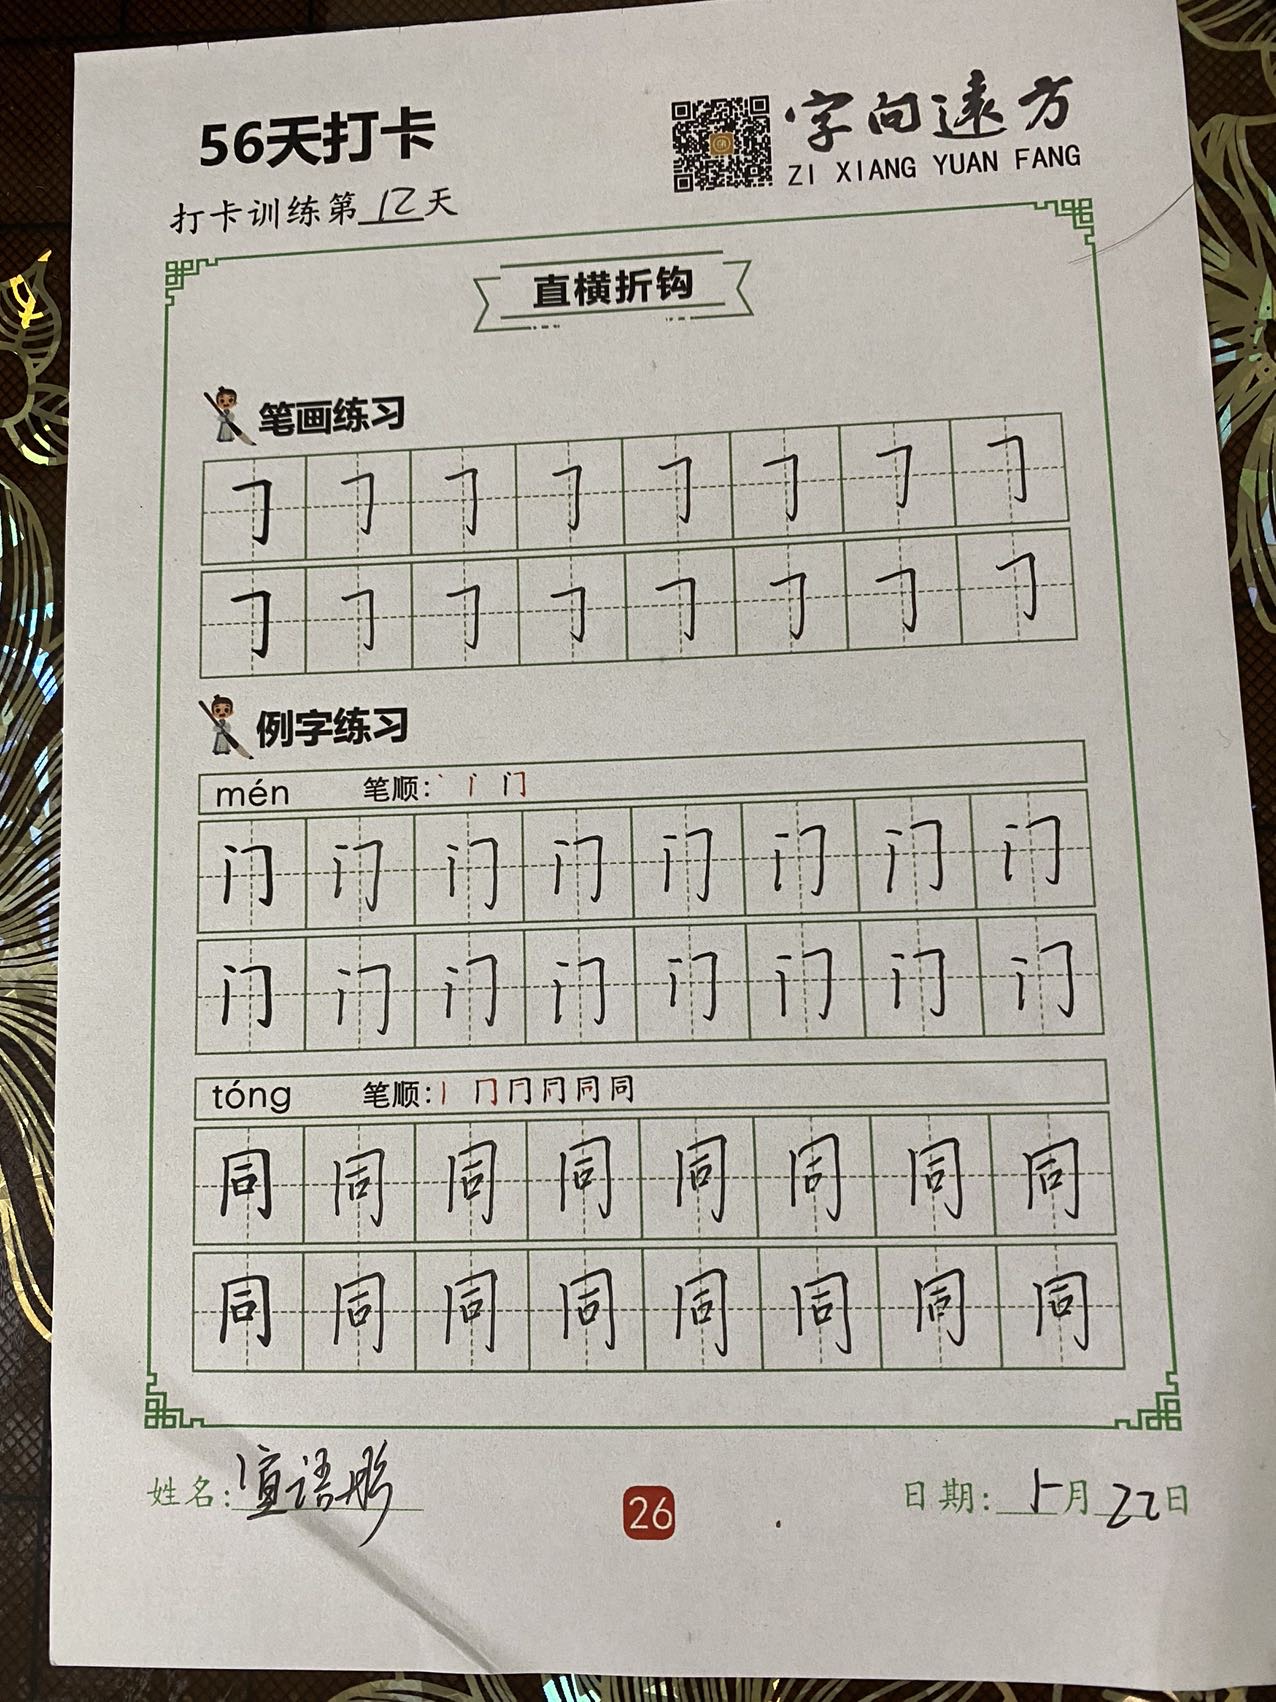 56天打卡
字向远方
ZI XIANG YUAN FANG
打卡训练第12天
直横折钩
笔画练习
𠃌 𠃌 𠃌 𠃌 𠃌 𠃌 𠃌 𠃌
𠃌 𠃌 𠃌 𠃌 𠃌 𠃌 𠃌 𠃌
例字练习
mén 笔顺: 门
门 门 门 门 门 门 门 门
门 门 门 门 门 门 门 门
tóng 笔顺: 同 同
同 同 同 同 同 同 同 同
同 同 同 同 同 同 同 同
姓名: 语彤
26
日期: 5月22日